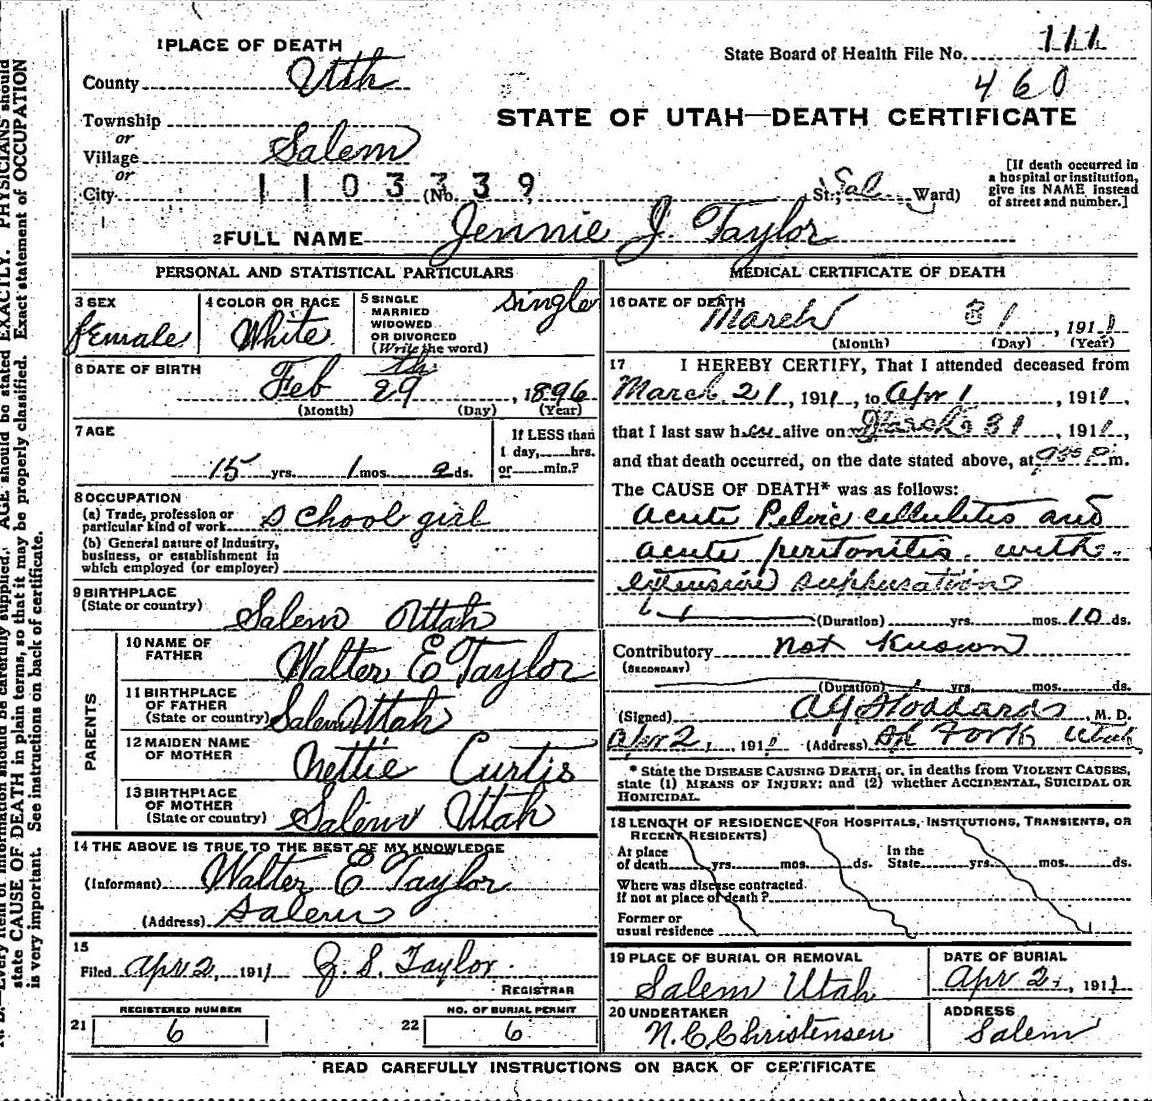 1 PLACE OF DEATH
State Board of Health File No. 111
County Utah
460
STATE OF UTAH—DEATH CERTIFICATE
Township
or
Village Salem
or
City
1103339
(No. St.; Sal Ward)
[If death occurred in
a hospital or institution,
give its NAME instead
of street and number.]
2 FULL NAME Jennie J. Taylor
PERSONAL AND STATISTICAL PARTICULARS
3 SEX
female
4 COLOR OR RACE
White
5 SINGLE
MARRIED
WIDOWED
OR DIVORCED
(Write the word)
single
6 DATE OF BIRTH
Feb 29th, 1896
(Month) (Day) (Year)
7 AGE
15 yrs. 1 mos. 2 ds.
If LESS than
1 day, hrs.
or min.?
8 OCCUPATION
(a) Trade, profession or
particular kind of work school girl
(b) General nature of industry,
business, or establishment in
which employed (or employer)
9 BIRTHPLACE
(State or country) Salem Utah
PARENTS
10 NAME OF
FATHER Walter E Taylor
11 BIRTHPLACE
OF FATHER
(State or country) Salem Utah
12 MAIDEN NAME
OF MOTHER Nettie Curtis
13 BIRTHPLACE
OF MOTHER
(State or country) Salem Utah
14 THE ABOVE IS TRUE TO THE BEST OF MY KNOWLEDGE
(Informant) Walter E Taylor
(Address) Salem
15
Filed Apr 2, 1911 J. S. Taylor
REGISTRAR
REGISTERED NUMBER
21 6
NO. OF BURIAL PERMIT
22 6
MEDICAL CERTIFICATE OF DEATH
16 DATE OF DEATH
March 31, 1911
(Month) (Day) (Year)
17 I HEREBY CERTIFY, That I attended deceased from
March 21, 1911, to Apr 1, 1911,
that I last saw her alive on March 31, 1911,
and that death occurred, on the date stated above, at P m.
The CAUSE OF DEATH* was as follows:
acute Pelvic cellulitis and
acute peritonitis. with
extensive suppuration
(Duration) yrs. mos. 10 ds.
Contributory Not Known
(SECONDARY)
(Duration) yrs. mos. ds.
(Signed) A G Stoddard, M. D.
Apr 2, 1911 (Address) Sp Fork Utah
* State the DISEASE CAUSING DEATH, or, in deaths from VIOLENT CAUSES,
state (1) MEANS OF INJURY; and (2) whether ACCIDENTAL, SUICIDAL OR
HOMICIDAL.
18 LENGTH OF RESIDENCE (FOR HOSPITALS, INSTITUTIONS, TRANSIENTS, OR
RECENT RESIDENTS)
At place
of death yrs. mos. ds.
In the
State yrs. mos. ds.
Where was disease contracted
if not at place of death?
Former or
usual residence
19 PLACE OF BURIAL OR REMOVAL
Salem Utah
DATE OF BURIAL
Apr 2, 1911
20 UNDERTAKER
N. C. Christensen
ADDRESS
Salem
READ CAREFULLY INSTRUCTIONS ON BACK OF CERTIFICATE
N. B.—Every item of information should be carefully supplied. AGE should be stated EXACTLY. PHYSICIANS should
state CAUSE OF DEATH in plain terms, so that it may be properly classified. Exact statement of OCCUPATION
is very important. See instructions on back of certificate.